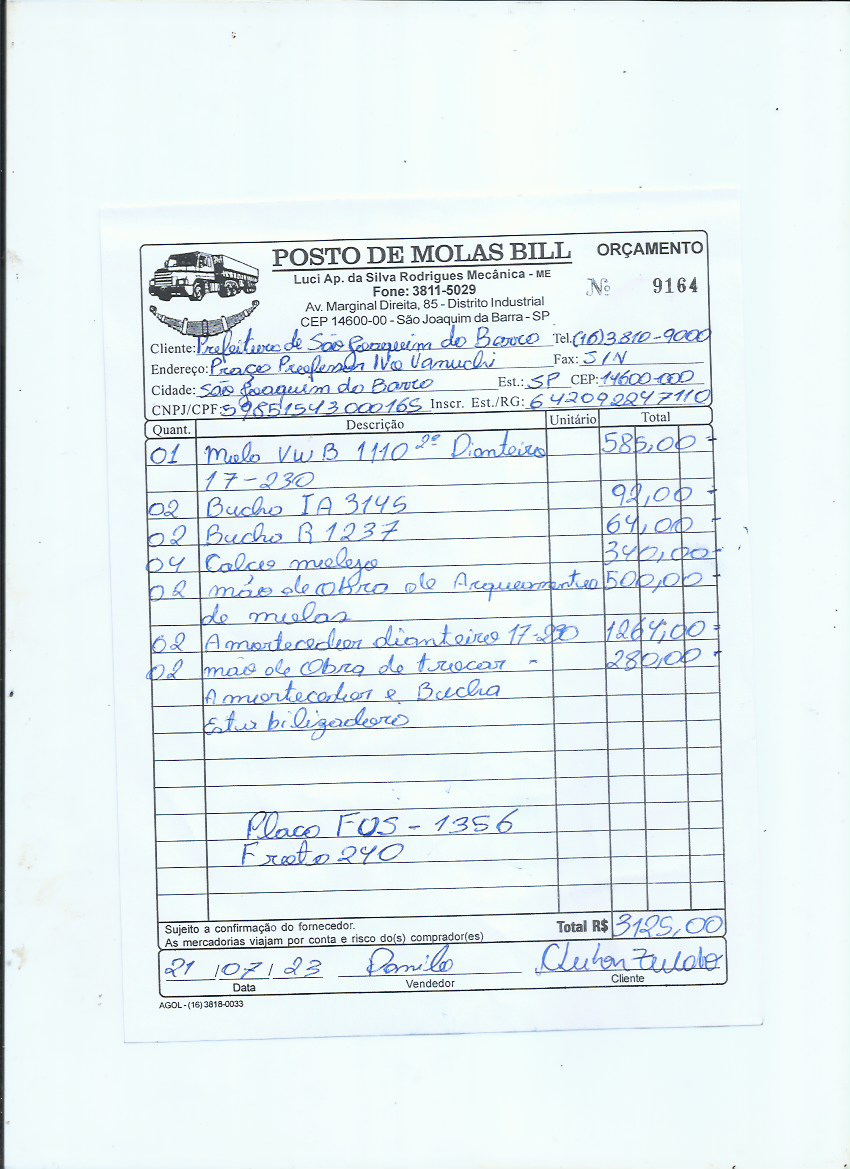 POSTO DE MOLAS BILL ORÇAMENTO
Luci Ap. da Silva Rodrigues Mecânica - ME
Fone: 3811-5029 Nº 9164
Av. Marginal Direita, 85 - Distrito Industrial
CEP 14600-00 - São Joaquim da Barra - SP
Cliente: Prefeitura de São Joaquim da Barra Tel. (16) 3810-9000
Endereço: Praça Professor Ivo Vanuchi Fax: S/N
Cidade: São Joaquim da Barra Est.: SP CEP: 14600-000
CNPJ/CPF: 59851543000165 Inscr. Est./RG: 642092247110
Quant. Descrição Unitário Total
01 Mola VW B 1110 2ª Dianteira 585,00 -
17-230
02 Bucha IA 3145 92,00 -
02 Bucha R 1237 64,00 -
04 Calço molejo 340,00 -
02 mão de obra de Arqueamento 500,00 -
de molas
02 Amortecedor dianteiro 17-230 1264,00 -
02 mão de Obra de trocar - 280,00 -
Amortecedor e Bucha
Estabilizadora
Placa FOS - 1356
Frota 240
Sujeito a confirmação do fornecedor.
As mercadorias viajam por conta e risco do(s) comprador(es)
Total R$ 3125,00
21 / 07 / 23 Danilo
Data Vendedor Cliente
AGOL - (16) 3818-0033